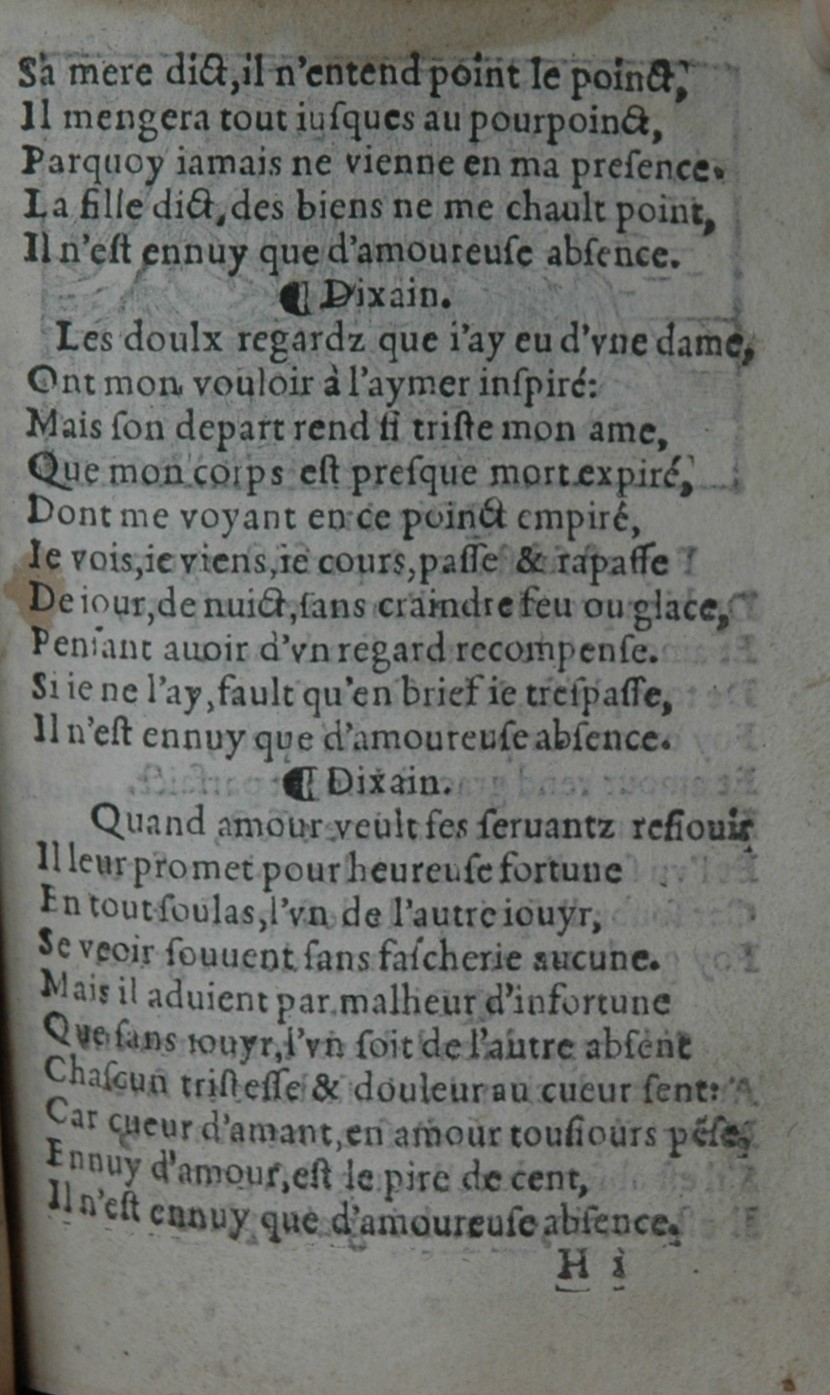 Sa mere dict,il n'entend point le poinct,
Il mengera tout iuſques au pourpoinct,
Parquoy iamais ne vienne en ma preſence.
La fille dict,des biens ne me chault point,
Il n'eſt ennuy que d'amoureuſe abſence.
¶ Dixain.
Les doulx regardz que i'ay eu d'vne dame,
Ont mon vouloir à l'aymer inſpiré:
Mais ſon depart rend ſi triſte mon ame,
Que mon corps eſt preſque mort expiré,
Dont me voyant en ce poinct empiré,
Ie vois,ie viens,ie cours,paſſe & rapaſſe
De iour,de nuict,ſans craindre feu ou glace,
Penſant auoir d'vn regard recompenſe.
Si ie ne l'ay,fault qu'en brief ie treſpaſſe,
Il n'eſt ennuy que d'amoureuſe abſence.
¶ Dixain.
Quand amour veult ſes ſeruantz reſiouir
Il leur promet pour heureuſe fortune
En tout ſoulas,l'vn de l'autre iouyr,
Se veoir ſouuent ſans faſcherie aucune.
Mais il aduient par malheur d'infortune
Que ſans iouyr,l'vn ſoit de l'autre abſent
Chaſcun triſteſſe & douleur au cueur ſent:
Car cueur d'amant,en amour touſiours pẽſe,
Ennuy d'amour,eſt le pire de cent,
Il n'eſt ennuy que d'amoureuſe abſence.
H i